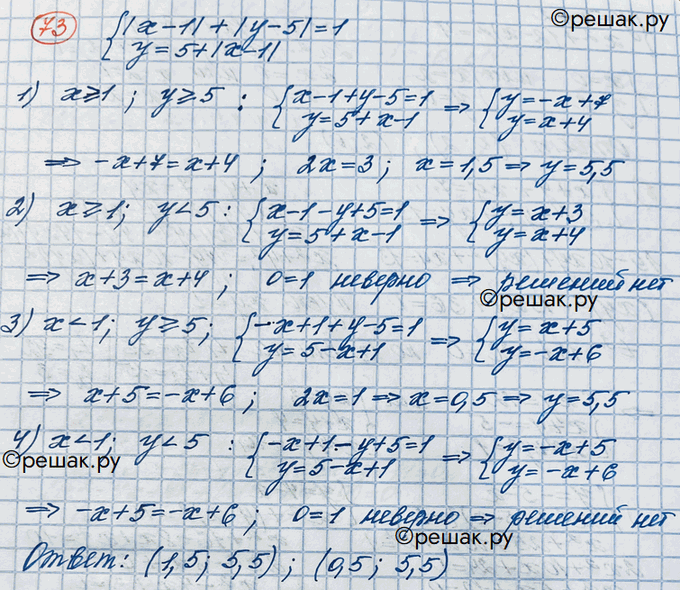 ©решак.ру
73 {|x-1|+|y-5|=1
y=5+|x-1|
1) x≥1; y≥5: {x-1+y-5=1 => {y=-x+7
y=5+x-1 y=x+4
=> -x+7=x+4; 2x=3; x=1,5 => y=5,5
2) x≥1; y<5: {x-1-y+5=1 => {y=x+3
y=5+x-1 y=x+4
=> x+3=x+4; 0=1 неверно => решений нет
©решак.ру
3) x<1; y≥5; {-x+1+y-5=1 => {y=x+5
y=5-x+1 y=-x+6
=> x+5=-x+6; 2x=1 => x=0,5 => y=5,5
4) x<1; y<5: {-x+1-y+5=1 => {y=-x+5
©решак.ру y=5-x+1 y=-x+6
=> -x+5=-x+6; 0=1 неверно => решений нет
©решак.ру
Ответ: (1,5; 5,5); (0,5; 5,5)